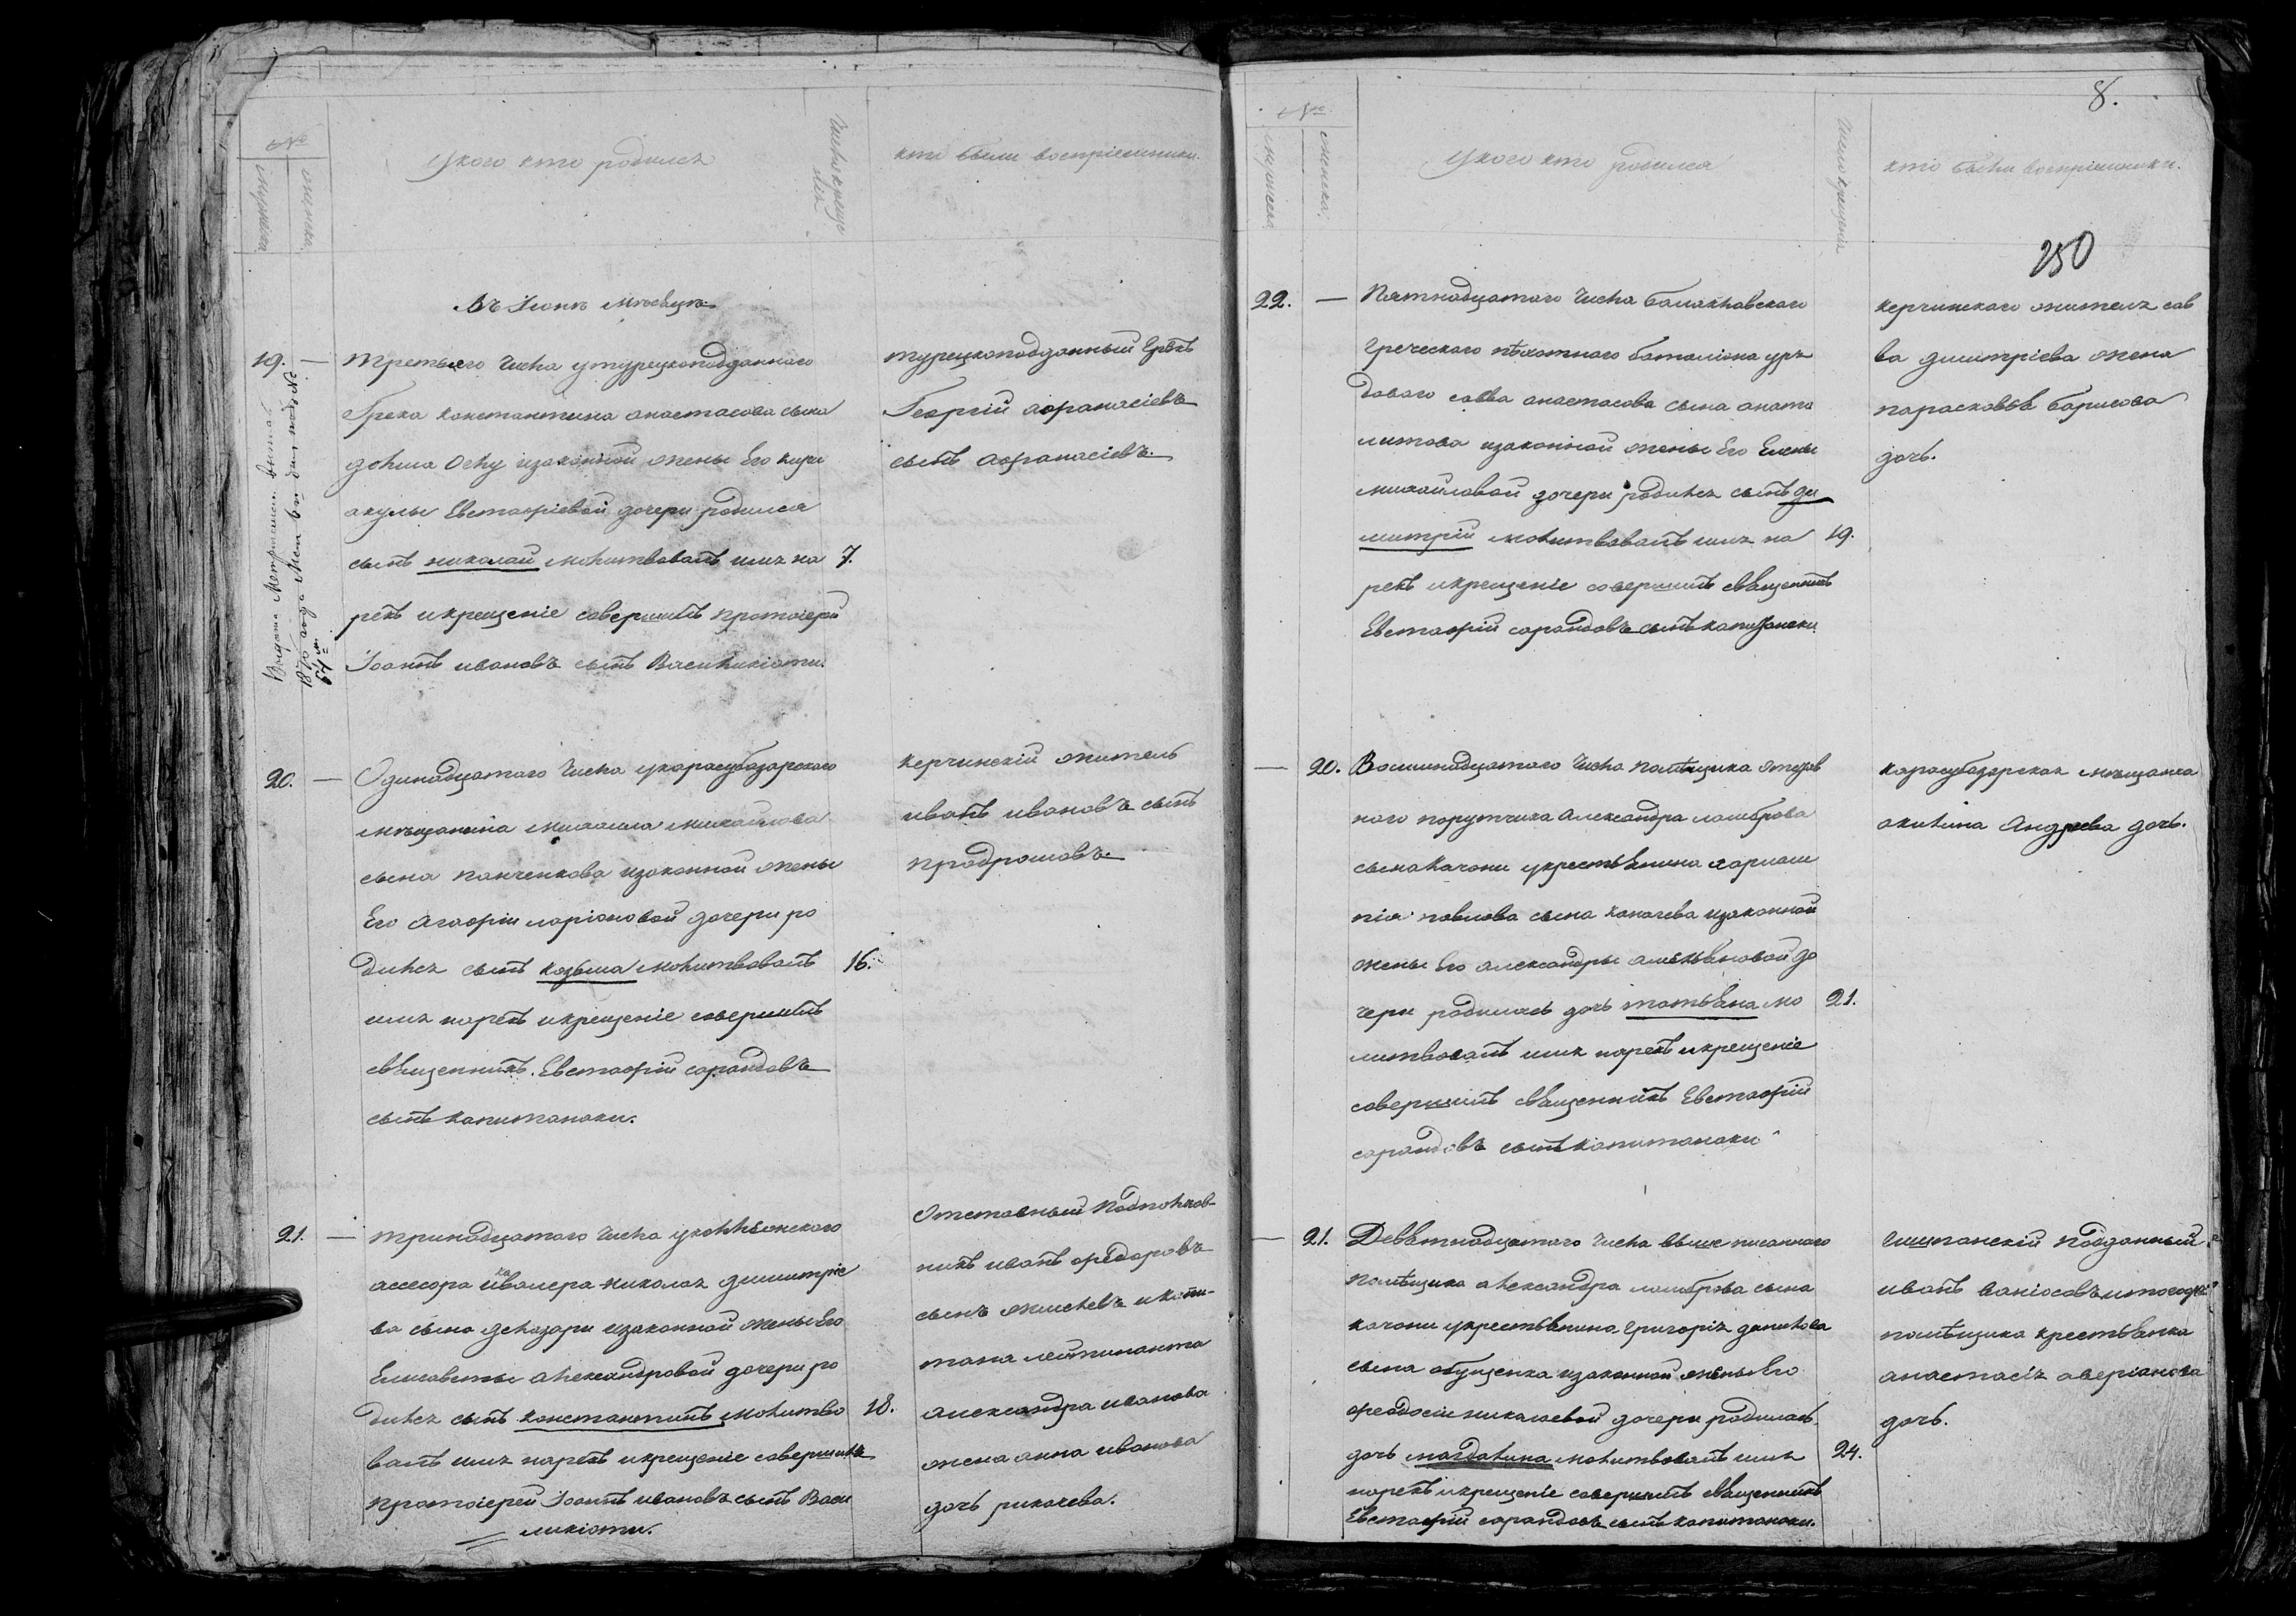 №
мужеска
женска
У кого кто родился
Число креще
нія
кто были воспріемники.
Въ Іюнѣ мѣсяцѣ
19. — Третьяго числа у турецкоподданного
Грека константина анастасова сына
изаконной жены Его кири
акулы Евстафіевой дочери родился
сынъ николай молитвовалъ имя на
7.
рекъ икрещеніе совершилъ протоіерей
Іоаннъ ивановъ сынъ Василикіоти.
турецкоподданный Грекъ
Георгій афанасіевъ
сынъ афанасіевъ.
Выдана Метрическ. выпись
1876 года подъ №
64
20. — Одинадцатаго числа укарасубазарского
мѣщанина михаила михайлова
сына панченкова изаконной жены
Его агафіи ларіоновой дочери ро
дился сынъ козьма молитвовалъ
16.
имя нарекъ икрещеніе совершилъ
свѣщенникъ Евстафій сарандовъ
сынъ капитанаки.
керчинскій житель
иванъ ивановъ сынъ
продромовъ
21. — тринадцатаго числа уколлѣжского
ассесора икавалера николая димитріе
ва сына делазари изаконной жены Его
Елисаветы александровой дочери ро
дился сынъ константинъ молитво
18.
валъ имя нарекъ икрещеніе совершилъ
протоіерей Іоаннъ ивановъ сынъ Васи
ликіоти.
Отставный Подполков-
никъ иванъ федоровъ
сынъ икапи-
тана лейтинанта
александра иванова
жена анна иванова
дочь рикачева.
8.
№
мужеска
женска.
У кого кто родился
Число крещенія
кто были воспріемники.
250
22. — Пятнадцатаго числа балаклавского
Греческого пѣхотного баталіона уря
доваго савва анастасова сына анато
литова изаконной жены Его Елены
михайловой дочери родился сынъ ди
митрій молитвовалъ имя на
19.
рекъ икрещеніе совершилъ свѣщенникъ
Евстафій сарандовъ сынъ капитанаки.
керчинского жителя сав
ва димитріева жена
парасковья барисова
дочь.
— 20. Восминадцатаго числа помѣщика отстав
ного порутчика александра ламброва
сына качони укрестьянина хармам
пія павлова сына изаконной
жены Его александры дo
чери родилась дочь татьяна мо
21.
литвовалъ имя нарекъ икрещеніе
совершилъ свѣщенникъ Евстафій
сарандовъ сынъ капитанаки
карасубазарская мѣщанка
акилина Андреева дочь.
— 21. Девятнадцатаго числа выше писанного
помѣщика александра ламброва сына
качони укрестьянина григорія данилова
сына изаконной жены Его
феодосіи николаевой дочери родилась
дочь магдалина молитвовалъ имя
24.
нарекъ икрещеніе совершилъ свѣщенникъ
Евстафій сарандовъ сынъ капитанаки.
Гишпанскій подданный
иванъ
помѣщика крестьянка
анастасія аверіанова
дочь.